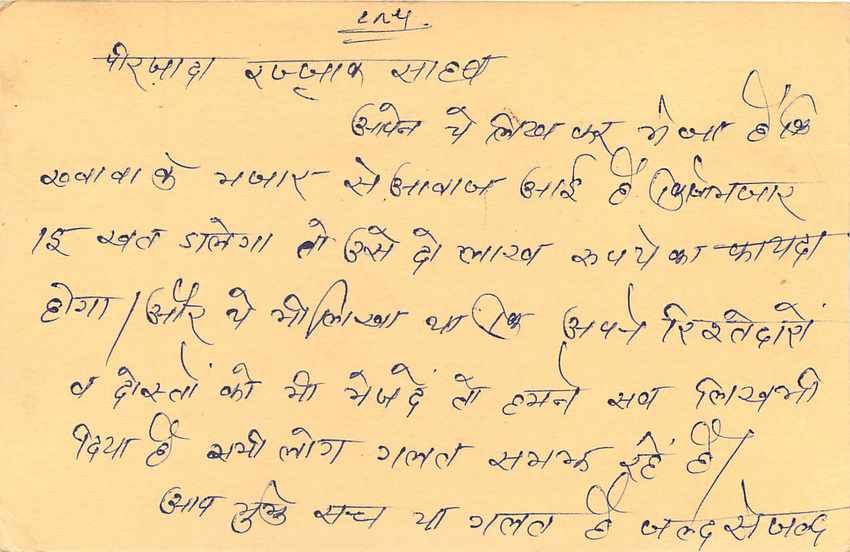 ८n५.
पीरजादा रज्जाक साहब
आपने ये लिख कर भेजा है कि
ख्वाबा के मजार से आवाज आई है कि जो मजार
१३ खत डालेगा तो उसे दो लाख रुपये का फायदा
होगा / और ये भी लिखा था कि अपने रिश्तेदारों
व दोस्तों को भी भेज दें तो हमने सब लिख भी
दिया है सभी लोग गलत समझ रहे हैं /
आप मुझे सच या गलत है जल्द से जल्द